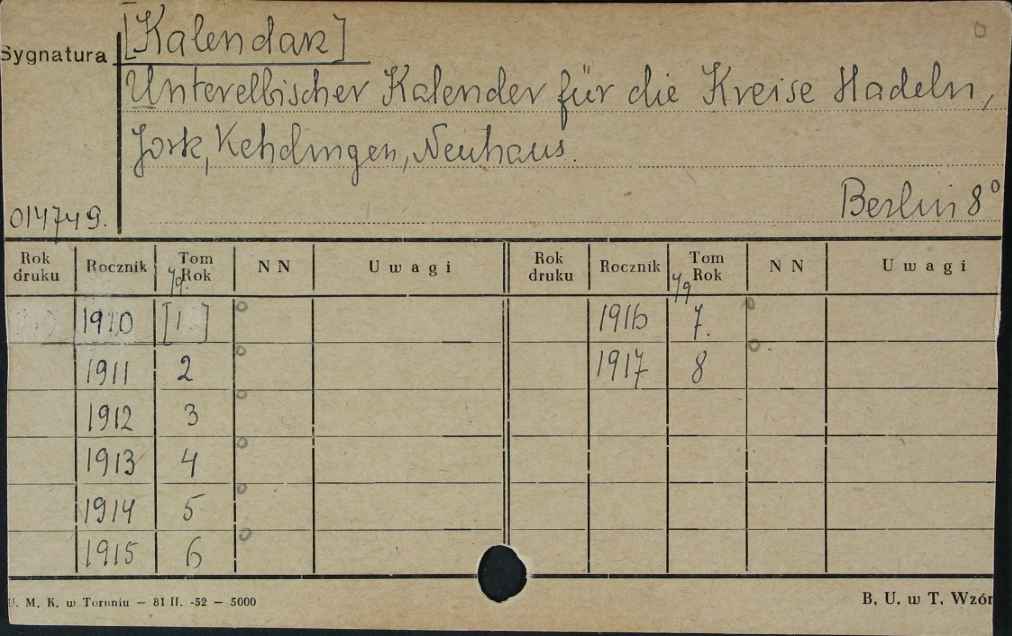 [Kalendarz]
Sygnatura
Unterelbischer Kalender für die Kreise Hadeln,
Jork, Kehdingen, Neuhaus.
Berlin 8°
014749.
Rok druku Rocznik Tom Jg. Rok N N Uwagi Rok druku Rocznik Tom Jg Rok N N Uwagi
1910 [1] 1916 7.
1911 2 1917 8
1912 3
1913 4
1914 5
1915 6
U. M. K. w Toruniu — 81 II. -52 — 5000 B. U. w T. Wzór